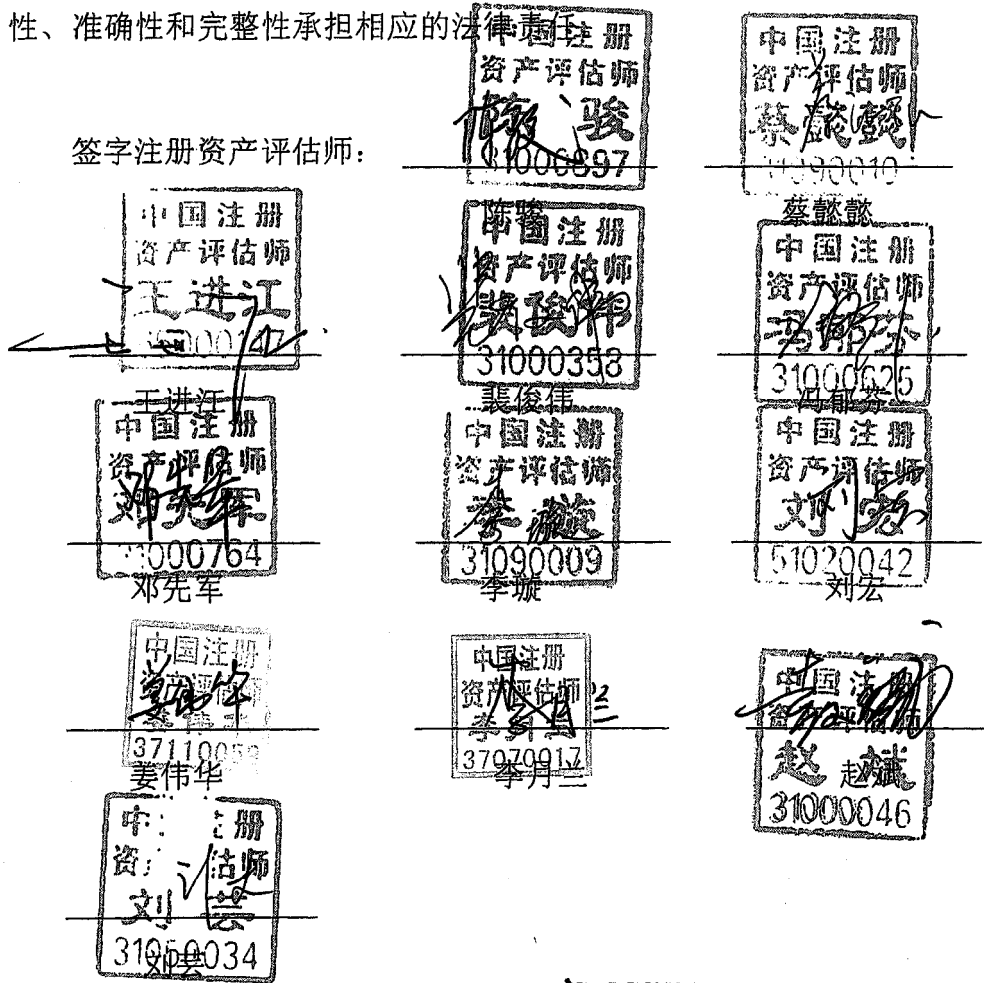 性、准确性和完整性承担相应的法律责任。
签字注册资产评估师：
中国注册
资产评估师
陈骏
31000897
陈骏
中国注册
资产评估师
蔡懿懿
蔡懿懿
中国注册
资产评估师
王进江
王进江
中国注册
资产评估师
裴俊伟
31000358
裴俊伟
中国注册
资产评估师
冯郁芬
31000625
冯郁芬
中国注册
资产评估师
邓先军
31000764
邓先军
中国注册
资产评估师
李璇
31090009
李璇
中国注册
资产评估师
刘宏
51020042
刘宏
中国注册
资产评估师
姜伟华
中国注册
资产评估师
李月兰
37070017
李月兰
中国注册
资产评估师
赵斌
31000046
赵斌
刘芸
31050034
刘芸